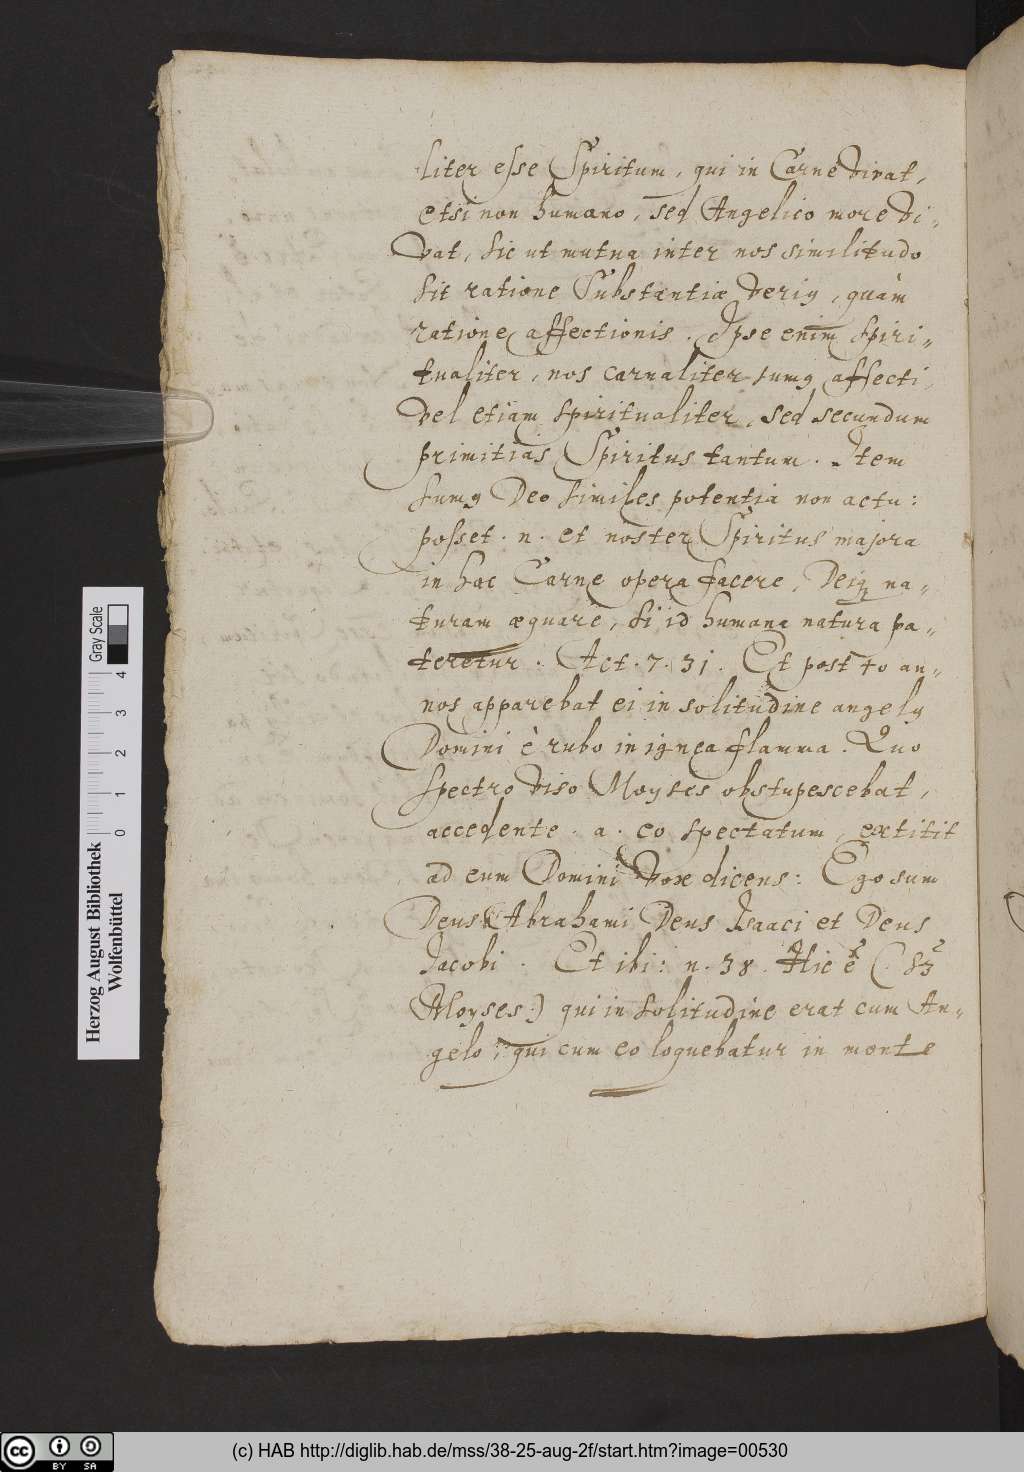 liter esse Spiritum, qui in Carne vivat,
etsi non humano, sed Angelico more vi-
vat, sic ut mutua inter nos similitudo
sit ratione Substantiæ verig, quàm
ratione affectionis. Ipse enim spiri„
tualiter, nos carnaliter sumg affecti,
vel etiam spiritualiter, sed secundum
primitias Spiritus tantum. Item
sumg Deo similes potentia non actu:
posset. n. et noster Spiritus majora
in hac Carne opera facere, Deiq na„
turam æquare, si id humana natura pa„
teretur. Act. 7. 31. Et post 40 an„
nos apparebat ei in solitudine angelg
Domini è rubo in ignea flamma. Quo
spectro viso Moyses obstupescebat,
accedente. a. eo spectatum, extitit
ad eum Domini vox dicens: Ego sum
Deus Abrahami Deus Isaaci et Deus
Jacobi. Et ibi: n. 38. Hic ē (:
Moyses:) qui in solitudine erat cum An„
gelo, qui cum eo loquebatur in monte
Herzog August Bibliothek
Wolfenbüttel
Gray Scale
0 1 2 3 4
cc BY SA
(c) HAB http://diglib.hab.de/mss/38-25-aug-2f/start.htm?image=00530